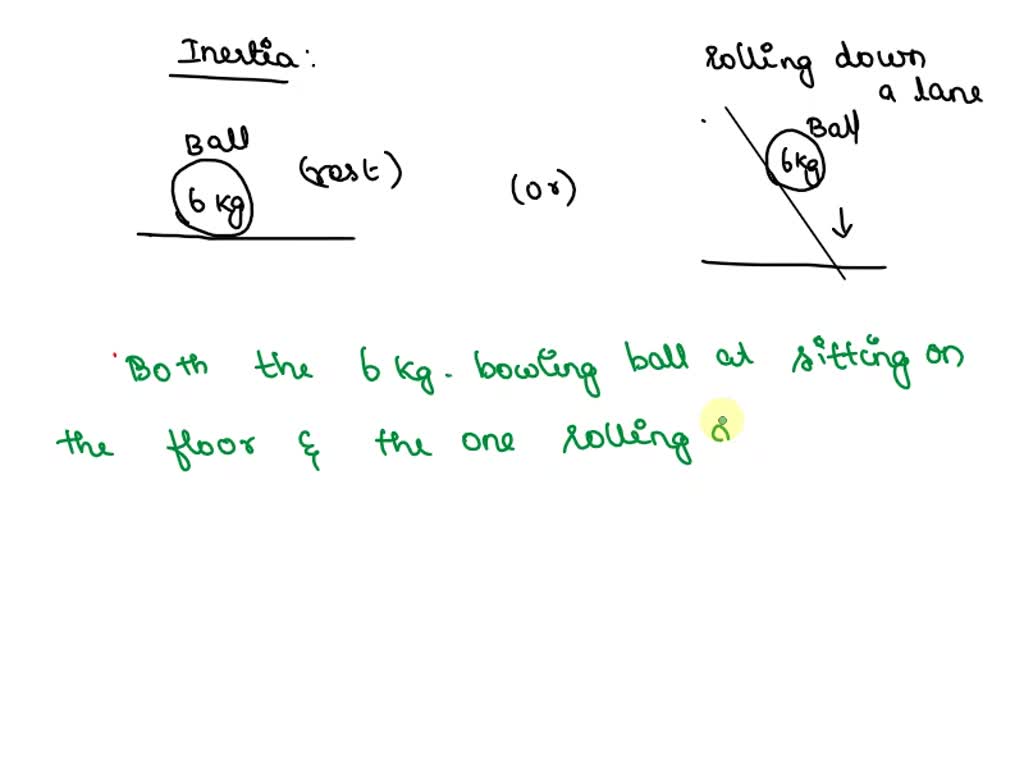 Inertia:
rolling down
a lane
Ball
6 kg
(rest)
(or)
Ball
6kg
Both the 6 kg. bowling ball at sitting on
the floor & the one rolling